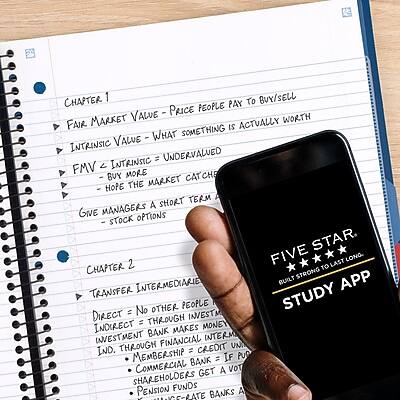 CHAPTER 1
FAIR MARKET VALUE - PRICE PEOPLE PAY TO BUY/SELL
INTRINSIC VALUE - WHAT SOMETHING IS ACTUALLY WORTH
FMV < INTRINSIC = UNDERVALUED
- BUY MORE
- HOPE THE MARKET CATCHE
GIVE MANAGERS A SHORT TERM
- STOCK OPTIONS
CHAPTER 2
TRANSFER INTERMEDIARIE
DIRECT = NO OTHER PEOPLE
INDIRECT = THROUGH INVESTM
INVESTMENT BANK MAKES MONEY
IND. THROUGH FINANCIAL INTERM
• MEMBERSHIP = CREDIT UN
• COMMERCIAL BANK = IF PUB
SHAREHOLDERS GET A VOT
• PENSION FUNDS
FIVE STAR®
BUILT STRONG TO LAST LONG.
STUDY APP